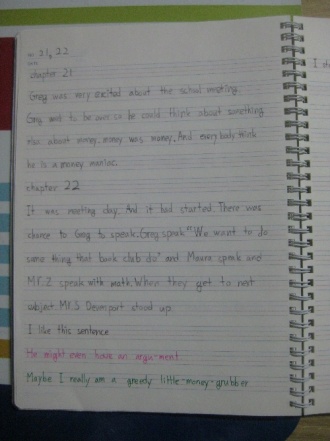 21, 22
chapter 21
Greg was very excited about the school meeting.
Greg want to be over so he could think about something
else about money. money was money. And every body think
he is a money maniac.
chapter 22
It was meeting day. And it had started. There was
chance to Greg to speak. Greg speak "We want to do
same thing that book club do" and Maura speak and
Mr. Z speak with math. When they get to next
subject. Mrs Davenport stood up.
I like this sentence
He might even have an argu-ment
Maybe I really am a greedy little-money-grubber
I